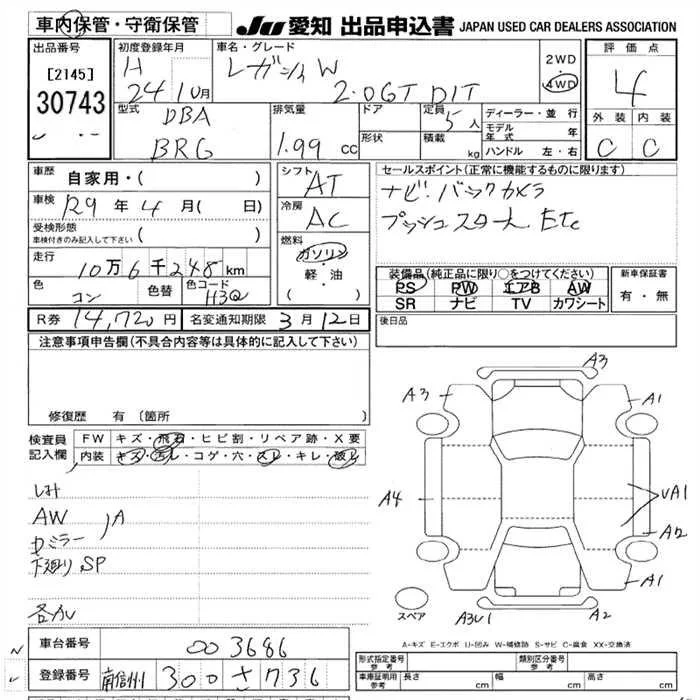 車内保管・守衛保管 JU 愛知 出品申込書 JAPAN USED CAR DEALERS ASSOCIATION
出品番号 初度登録年月 車名・グレード 評価点
[2145] H レガシィW 2WD 4WD
30743 24 10月 2.0GT DIT 4
型式 排気量 ドア 定員 ディーラー・並行 外装 内装
DBA 5人 モデル年式 年
BRG 1.99 cc 形状 積載 kg ハンドル 左・右 C C
車歴 自家用・( ) シフト AT セールスポイント(正常に機能するものに限ります)
車検 R9 年 4 月( 日) ナビ、バックカメラ
受検形態 車検付きのみ記入して下さい ( ) 冷房 AC プッシュスタート ETC
走行 10万6千248km 燃料 ガソリン・軽・油 ( )
色 コン 色替 色コード H3Q
装備品(純正品に限り○をつけてください) 新車保証書
PS PW エアB AW 有・無
SR ナビ TV カワシート
R券 14,720円 名変通知期限 3月12日 後日品
注意事項申告欄(不具合内容等は具体的に記入して下さい)
修復歴 有 〔箇所
検査員記入欄 FW キズ・飛石・ヒビ割・リペア跡・X要
内装 キズ・汚レ・コゲ・穴・スレ・キレ・破レ
A3
A3 A1
A4 UA1
A2
A1
スペア A3U1 A2
AW A
ミラー
下廻り SP
A-キズ E-エクボ U-凹み W-補修跡 S-サビ C-腐食 XX-交換済
車台番号 003686
登録番号 南信州 300 さ 736
形式指定番号 参考 類別区分番号 参考
車庫証明用 参考 長さ cm 幅 cm 高さ cm